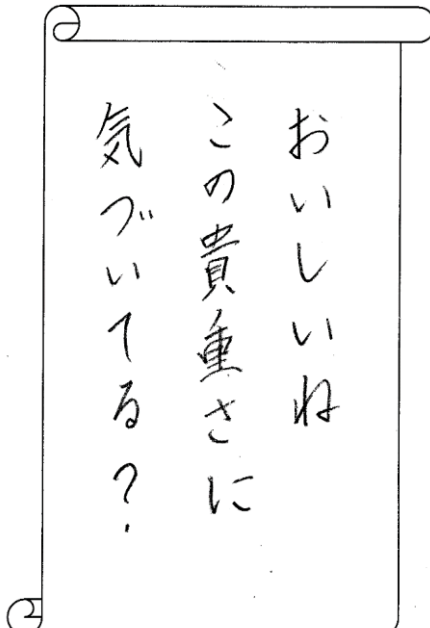 おいしいね
この貴重さに
気づいてる?